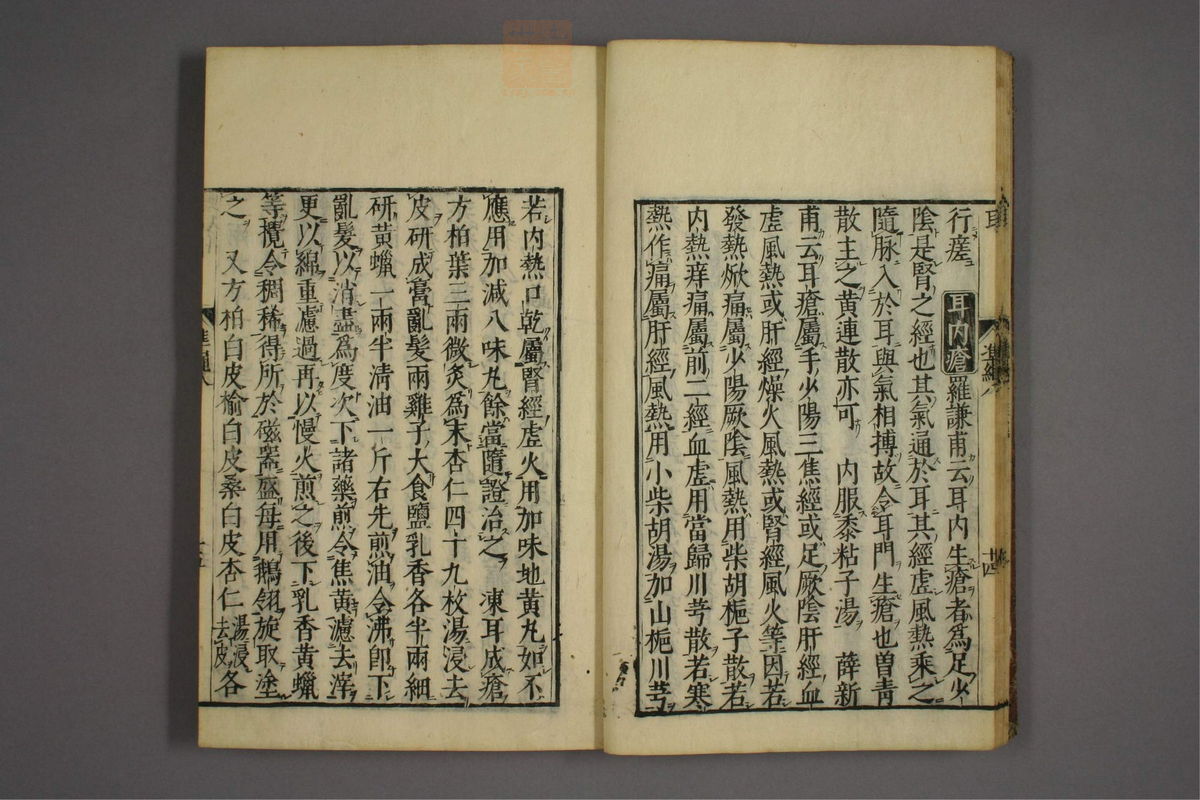 行瘥 耳内瘡 羅謙甫云耳内生瘡者爲足少
陰是腎之經也其氣通於耳其經虚風熱乘之
隨脉入於耳與氣相搏故令耳門生瘡也曽青
散主之黄連散亦可 内服黍粘子湯 薛新
甫云耳瘡屬手少陽三焦經或足厥陰肝經血
虚風熱或肝經燥火風熱或腎經風火等因若
發熱焮痛屬少陽厥陰風熱用柴胡梔子散若
内熱痒痛屬前二經血虚用當歸川芎散若寒
熱作痛屬肝經風熱用小柴胡湯加山梔川芎
十四
若内熱口乾屬腎經虚火用加味地黄丸如不
應用加減八味丸餘當隨證治之 凍耳成瘡
方柏葉三兩微炙爲末杏仁四十九枚湯浸去
皮研成膏亂髮兩雞子大食鹽乳香各半兩細
研黄蠟一兩半清油一斤右先煎油令沸即下
亂髮以消盡爲度次下諸藥煎令焦黄濾去滓
更以綿重濾過再以慢火煎之後下乳香黄蠟
等攪令稠稀得所於磁器盛每用鵝翎旋取塗
之 又方柏白皮榆白皮桑白皮杏仁湯浸去皮各